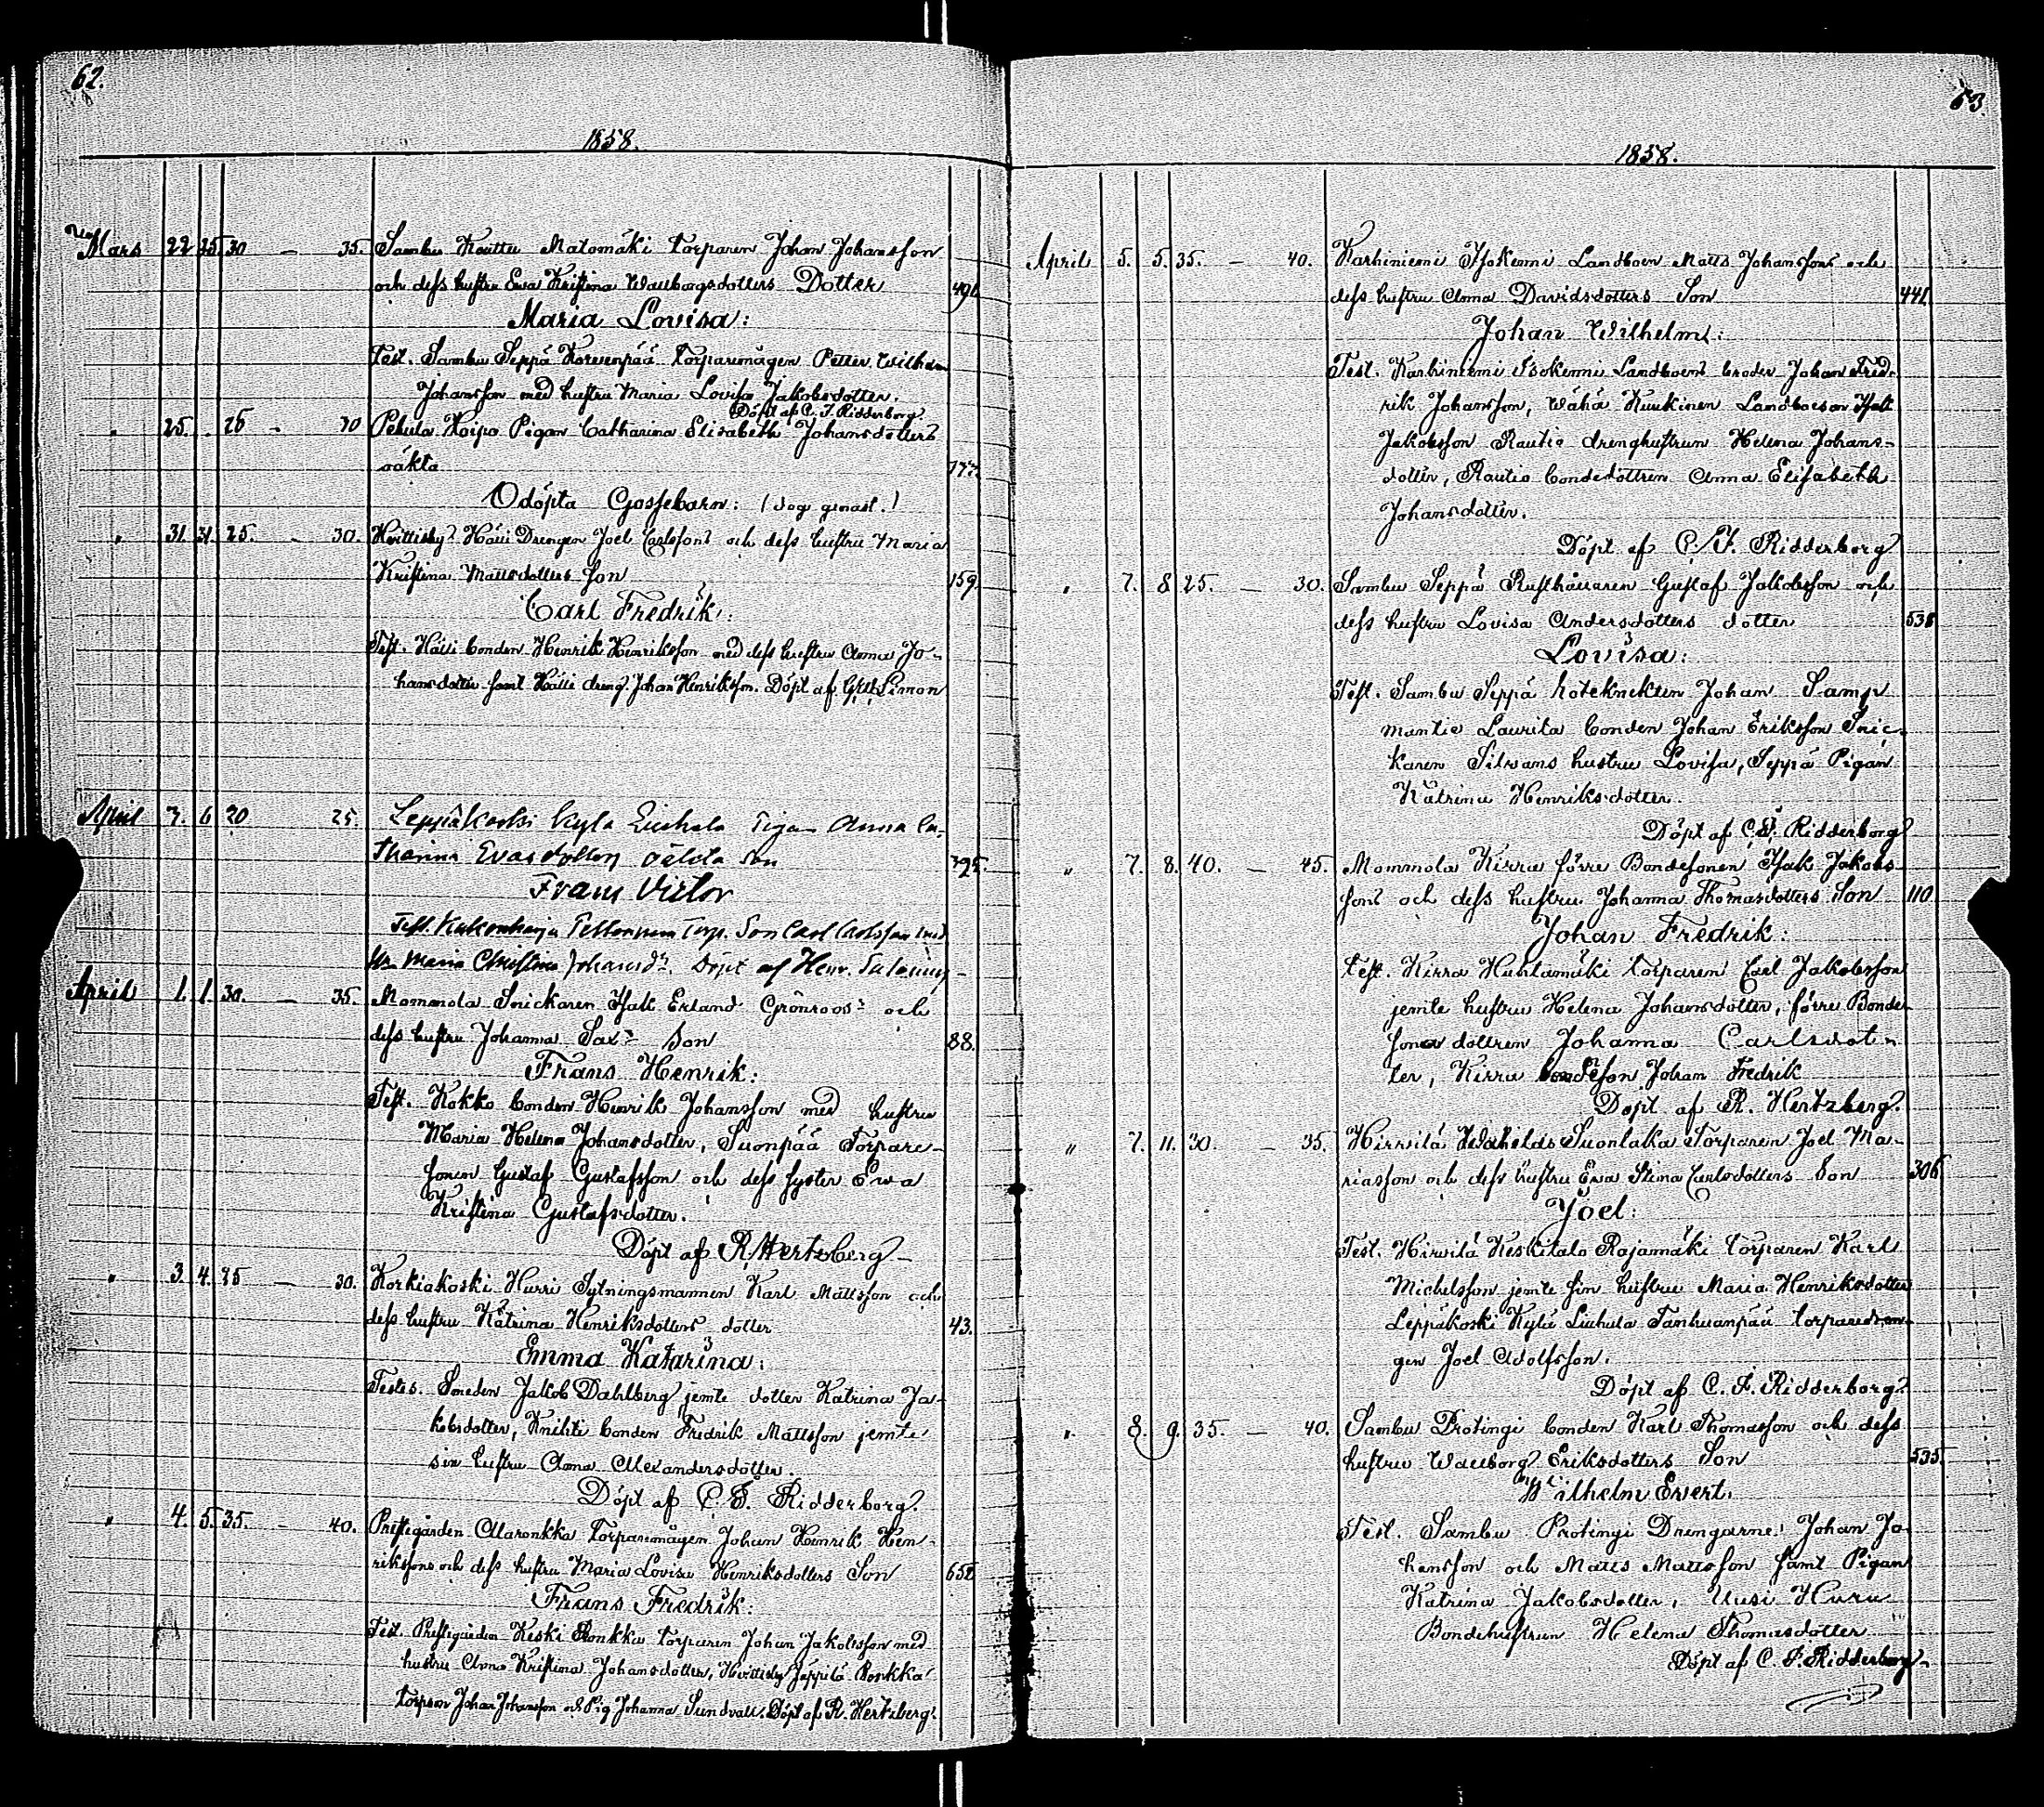 62.
1858.
Mars 22 25. 30 — 35. Sambu Knuttu Matomäki torparen Johan Johansson
och dess hustru Ewa Kristina Walborgsdotters Dotter
Maria Lovisa:
Test. Sambu Seppä Korvenpää torparemågen Petter Wilhelm
Johansson med hustru Maria Lovisa Jakobsdotter.
Döpt af C. F. Ridderborg
" 25. . 26 - 30 Pekula Koipo Pigan Catharina Elisabeth Johansdotters
oäkta 177.
Odöpta Gossebarn: (dog genast.)
" 31. 31. 25. — 30. Hvittisby Häii Drengen Joel Carlssons och dess hustru Maria
Kristina Mattsdotters son 159.
Carl Fredrik:
Test. Häii bonden Henrik Henriksson med dess hustru Anna Jo-
hansdotter samt Häii dreng. Johan Henriksson. Döpt af Limon
April 3. 6 20 25. Leppäkoski Kylä Liuhala Piga Anna Ca-
tharina Evasdotters oäkta son 325.
Frans Victor
Test. Torp. Son Carl Carlsson med
hu Maria Christina Johansdr. Döpt af Henr.
April 1. 1. 30. — 35. Mommola Snickaren Isak Erland Grönroos och
dess hustru Johanna Sax son 88.
Frans Henrik:
Test. Kokko bonden Henrik Johansson med hustru
Maria Helena Johansdotter, Suonpää Torpare-
sonen Gustaf Gustafsson och dess syster Ewa
Kristina Gustafsdotter.
Döpt af R. Hertzberg
" 3. 4. 25 — 30. Korkiakoski Hurri Sytningsmannen Karl Mattsson och
dess hustru Katrina Henriksdotters dotter 43.
Emma Katarina:
Testes. Smeden Jakob Dahlberg jemte dotter Katrina Ja-
kobsdotter, Knihti bonden Fredrik Mattsson jemte
sin hustru Anna Alexandersdotter.
Döpt af C. F. Ridderborg.
" 4. 5. 35. - 40. Prestegården Alaronkka torparemågen Johan Henrik Hen-
rikssons och dess hustru Maria Lovisa Henriksdotters Son 652
Frans Fredrik:
Test. Prestegården Keski Ronkka torparen Johan Jakobsson med
hustru Anna Kristina Johansdotter, Hvittisby Seppilä Ronkka
torpson Johan Johansson o. Pig Johanna Sundvall. Döpt af R. Hertzberg.
63.
1858.
April 5. 5. 35. — 40. Karhiniemi Isokenni Landboen Matts Johanssons och
dess hustru Anna Davidsdotters Son 441
Johan Wilhelm:
Test. Karhiniemi Isokenni Landboens broder Johan Fred-
rik Johansson, Wähä Kuukinen Landboeson Isak
Jakobsson Rautio drenghustrun Helena Johans-
dotter, Rautio bondedottren Anna Elisabeth
Johansdotter.
Döpt af C. F. Ridderborg
" 7. 8 25. — 30. Sambu Seppä Rusthållaren Gustaf Jakobsson och
dess hustru Lovisa Andersdotters dotter 538
Lovisa:
Test. Sambu Seppä båteknekten Johan Samp
mantio Laurila bonden Johan Eriksson Snic-
karen Silwans hustru Lovisa, Seppä Pigan
Katrina Henriksdotter.
Döpt af C. F. Ridderborg
" 7. 8. 40. — 45. Mommola Kirra förre Bondesonen Isak Jakobs-
sons och dess hustru Johanna Thomasdotters Son 110
Johan Fredrik:
Test. Kirra Huhtamäki torparen Carl Jakobsson
jemte hustru Helena Johansdotter, förre Bonde-
sone dottren Johanna Carlsdot-
ter, Kirra bondeson Johan Fredrik
Döpt af R. Hertzberg.
" 7. 11. 30. — 35. Hirvilä Suontaka Torparen Joel Ma-
riasson och dess hustru Ewa Stina Carlsdotters Son 306
Joel:
Test. Hirvilä Keskitalo Rajamäki torparen Karl
Michelsson jemte sin hustru Maria Henriksdotter
Leppäkoski Kylä Liuhala Tanhuanpää torparedren-
gen Joel Adolfsson.
Döpt af C. F. Ridderborg
" 8. 9. 35. — 40. Sambu Protingi bonden Karl Thomasson och dess
hustru Walborg Eriksdotters Son 535.
Wilhelm Evert.
Test. Sambu Protingi Drengarne: Johan Jo-
hansson och Matts Mattsson samt Pigan
Katrina Jakobsdotter, Uusi Huru
Bondehustrun Helena Thomasdotter
Döpt af C. F. Ridderborg